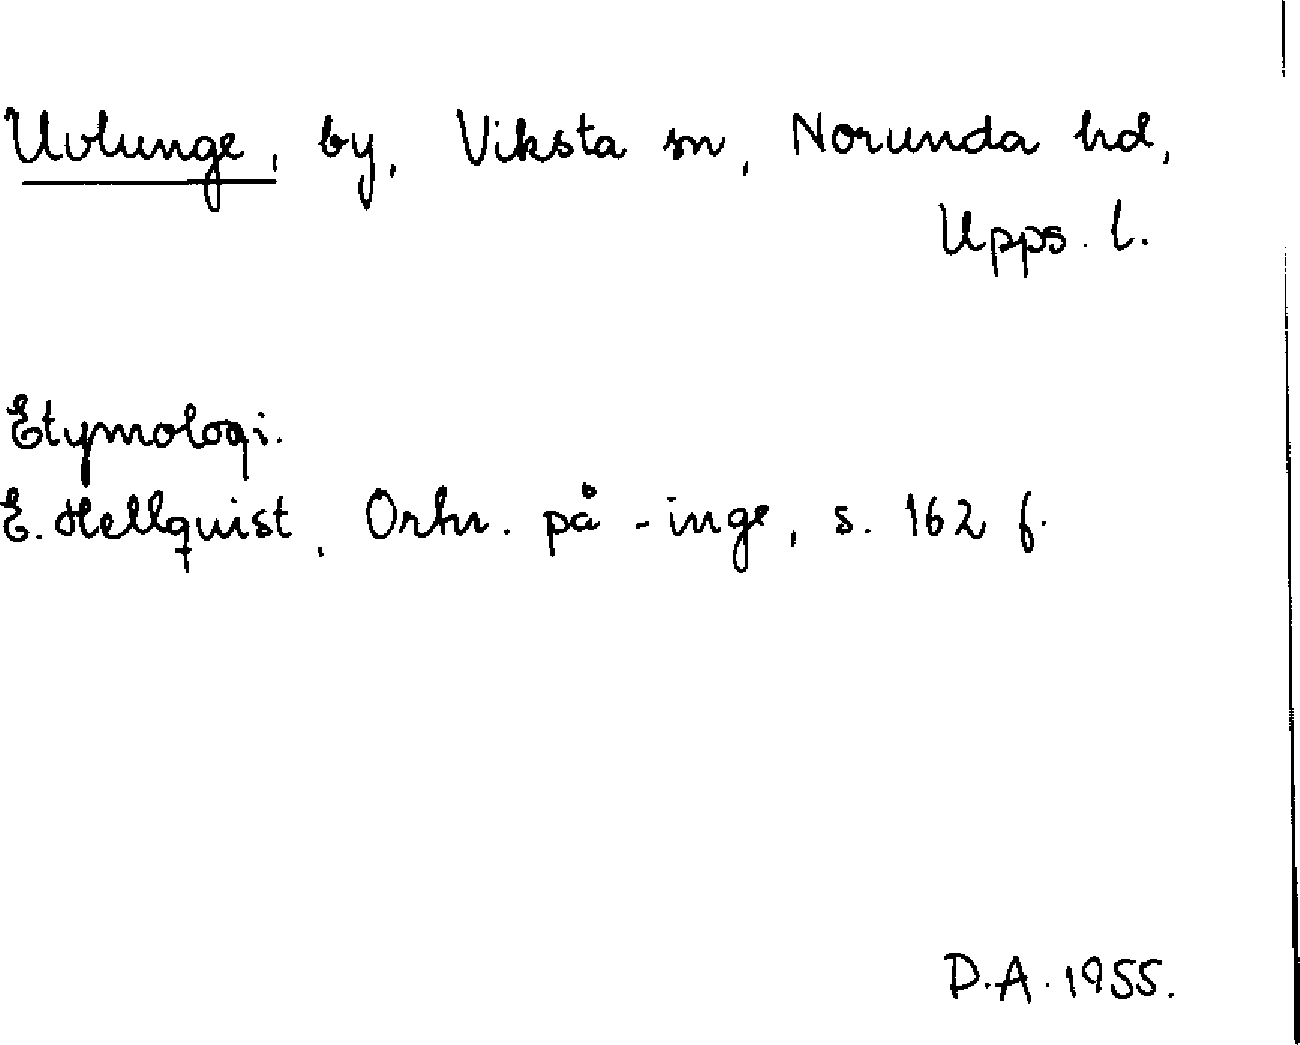 Uvlunge, by, Viksta sn, Norunda hd,
Upps. l.
Etymologi.
E. Hellquist, Ortn. på -inge, s. 162 f.
D.A. 1955.